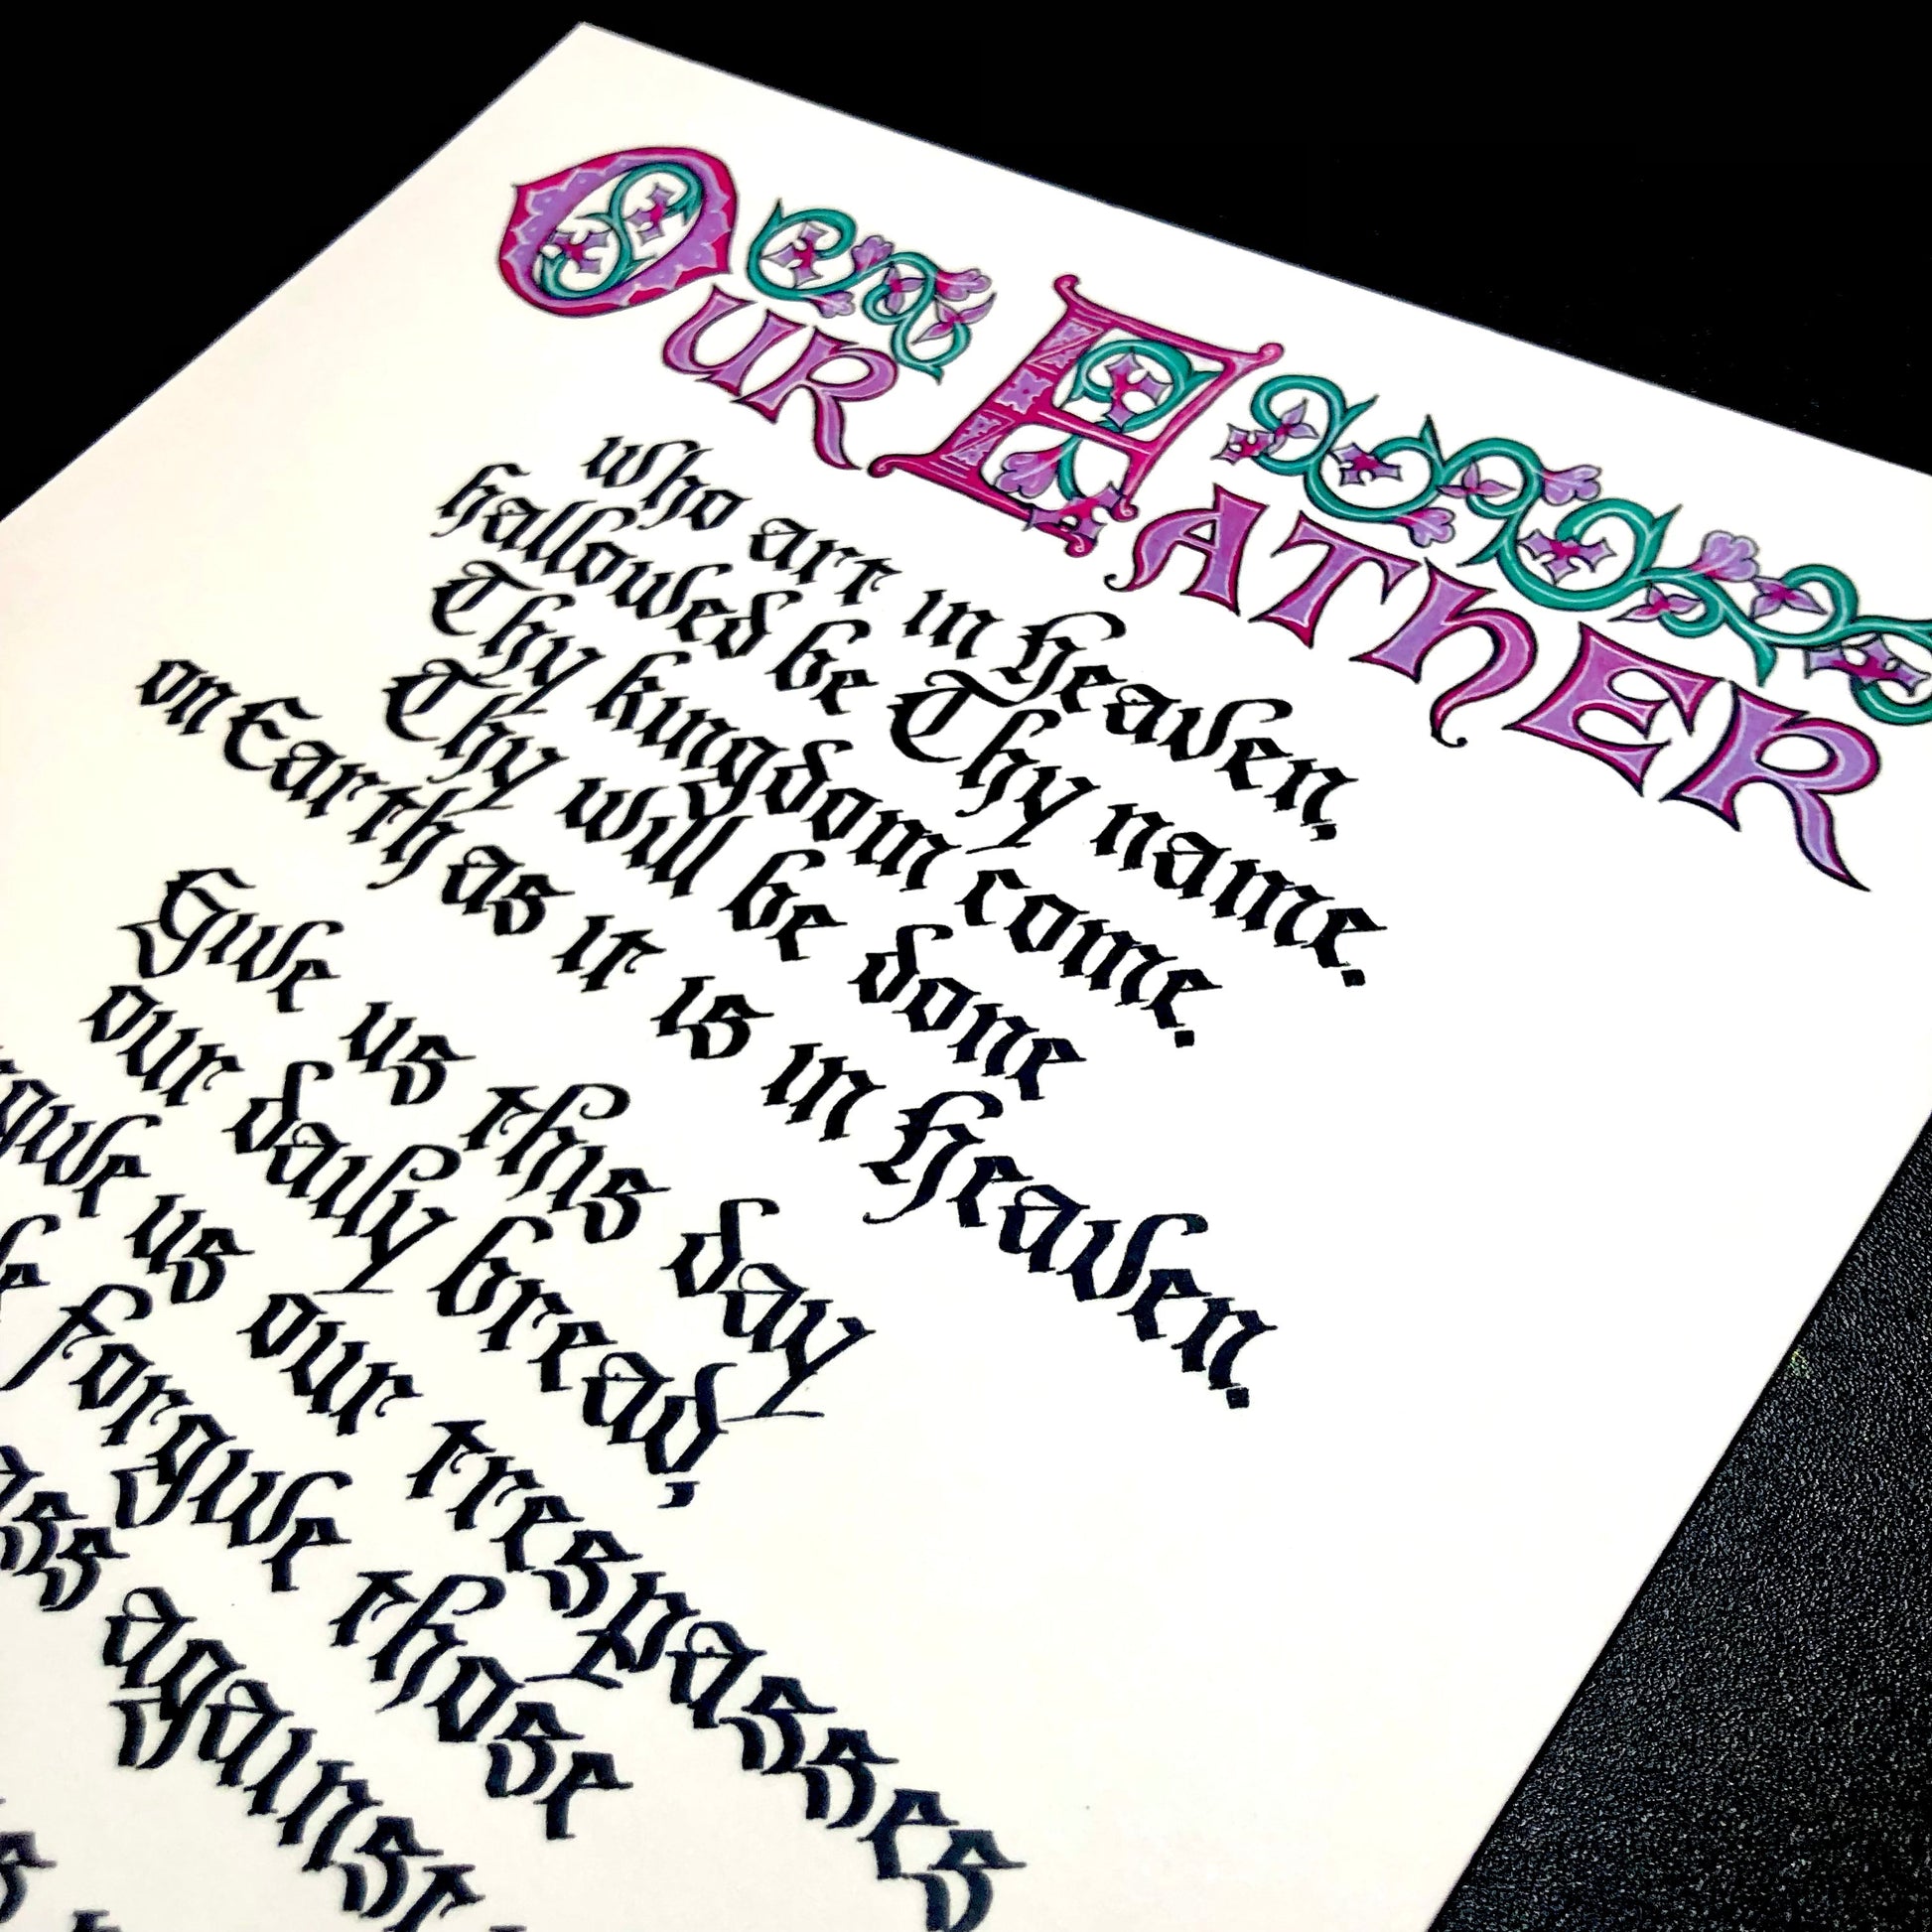 OUR FATHER
who art in heaven.
hallowed be Thy name.
Thy kingdom come.
Thy will be done
on Earth as it is in heaven.
Give us this day
our daily bread,
us our trespasses
forgive those
against